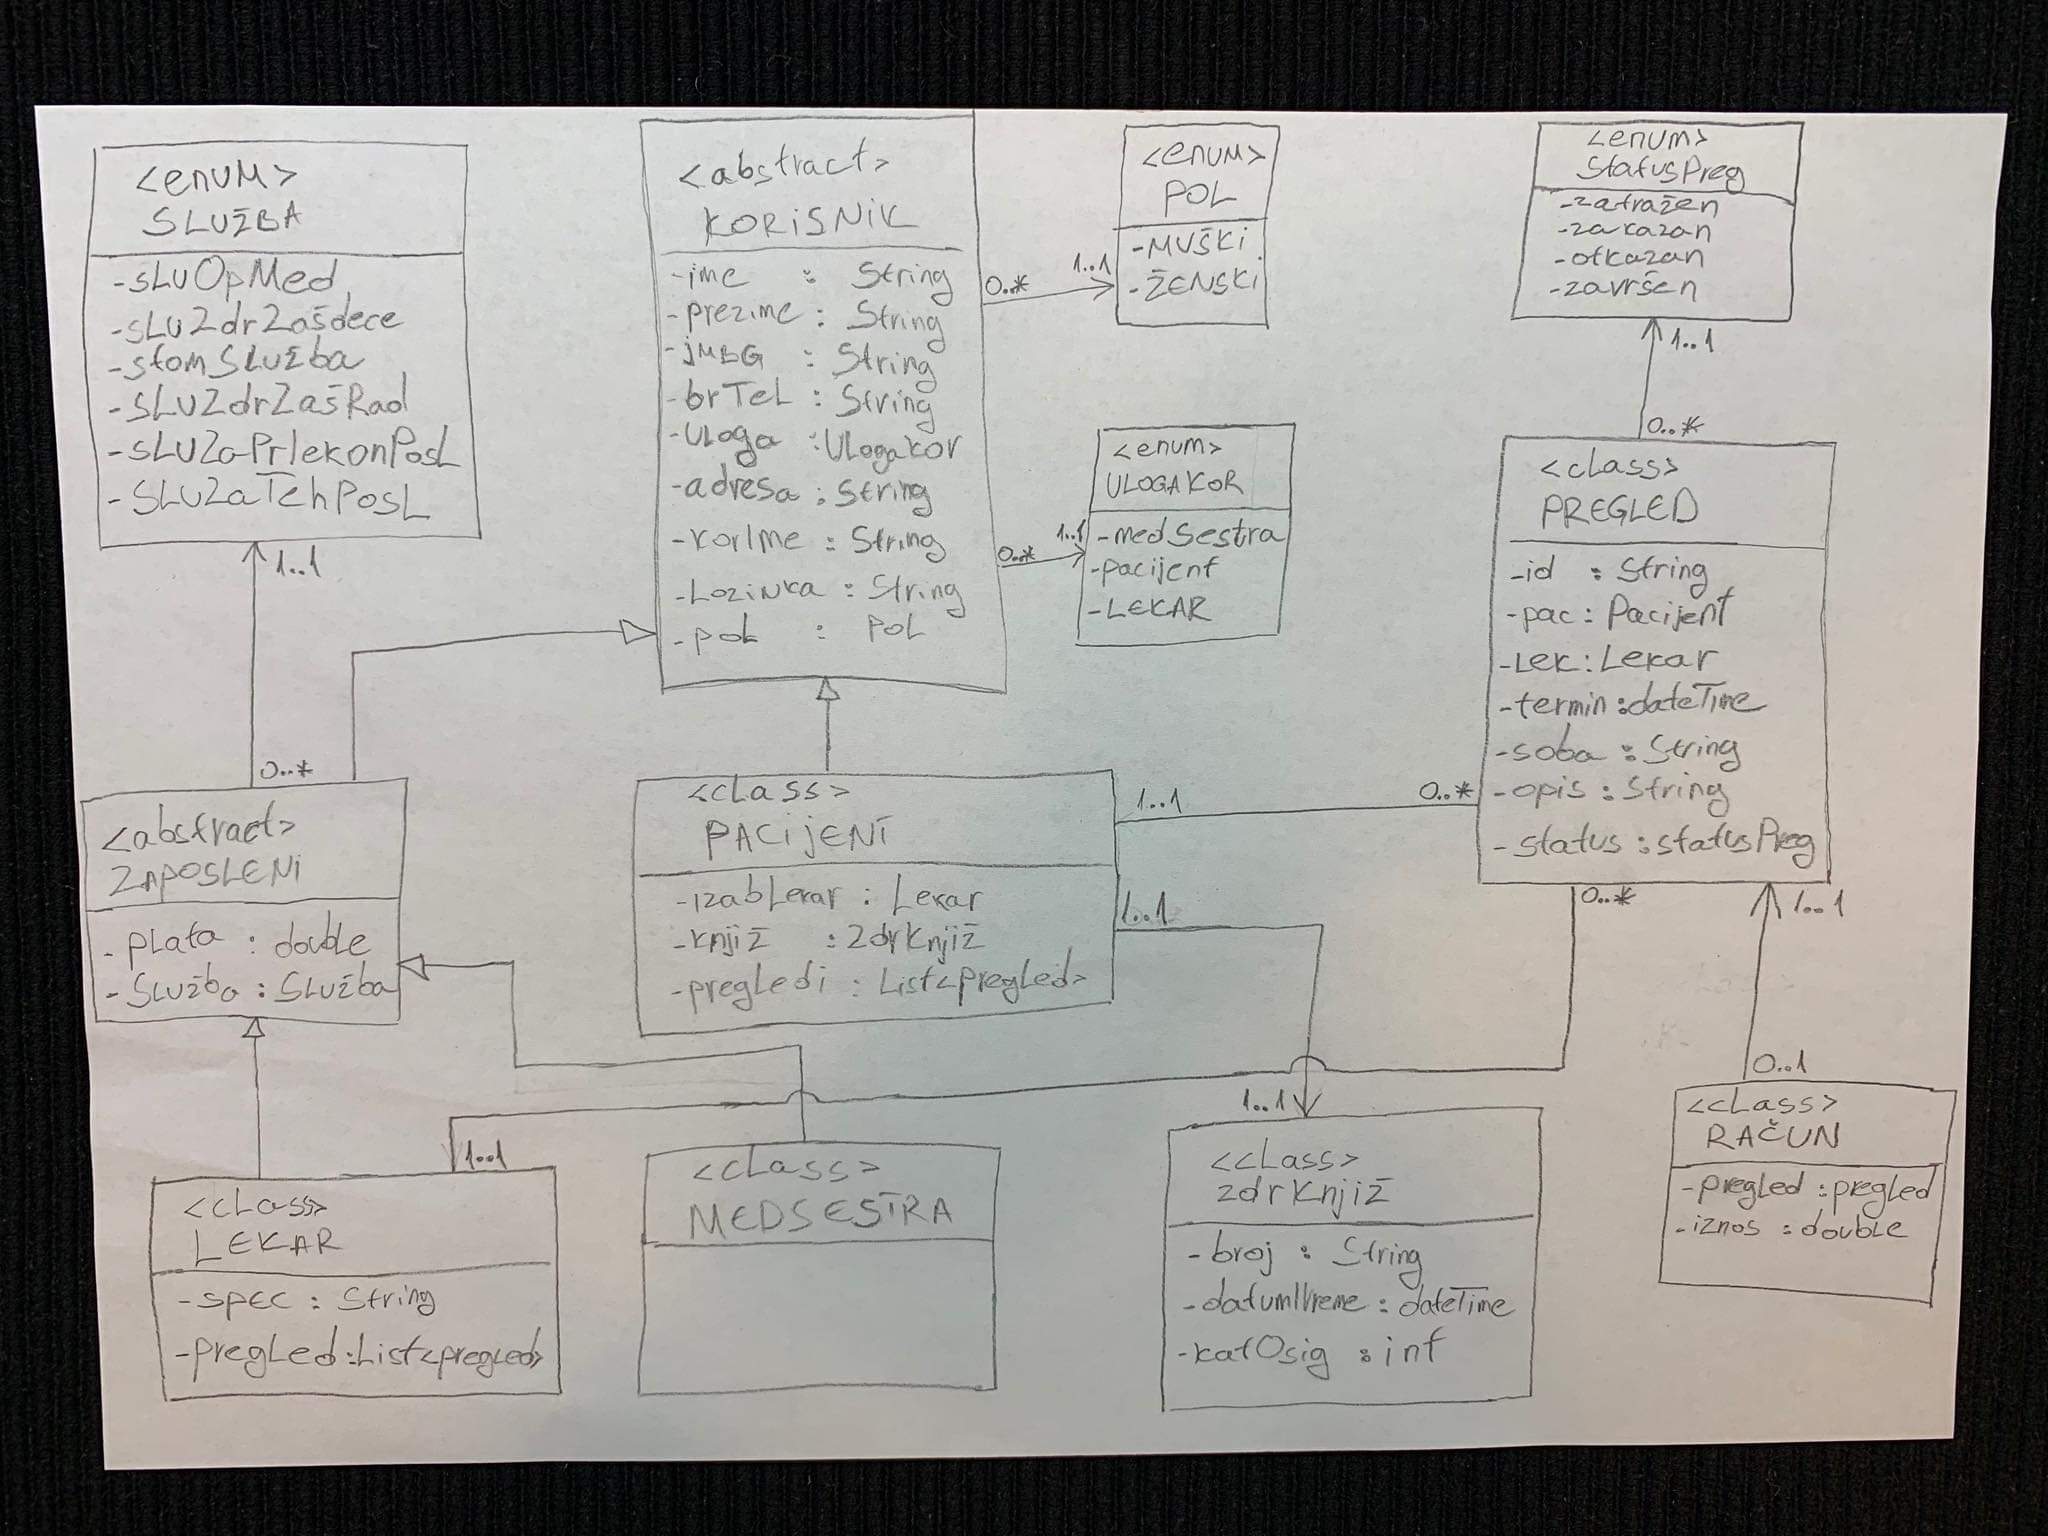 <enum>
SLUŽBA
-sLuOpMed
-sLuZdrZašdece
-stomSLužba
-sLuZdrZašRad
-sLuZaPrIekonPosL
-SLuZaTehPosL
1..1
0..*
<abstract>
KORiSNiK
-ime : String
-prezime : String
-jMBG : String
-brTeL : String
-uLoga : ULogaKor
-adresa : String
-KorIme : String
-Lozinka : String
-poL : PoL
0..*
1..1
0..*
1..1
<enum>
POL
-MUŠKi
-ŽENSKi
<enum>
ULOGAKOR
-medSestra
-pacijent
-LEKAR
<enum>
StatusPreg
-zatražen
-zakazan
-otkazan
-završen
1..1
0..*
<class>
PREGLED
-id : String
-pac : Pacijent
-Lek : Lekar
-termin : dateTime
-soba : String
-opis : String
-status : statusPreg
<abstract>
ZAPOSLENi
-pLata : double
-SLužba : SLužba
<cLass>
PACijENT
-izabLekar : Lekar
-Knjiž : ZdrKnjiž
-pregLedi : List<pregLed>
1..1
0..*
1..1
0..*
1..1
1..1
1..1
0..1
<cLass>
LEKAR
-spec : String
-pregLed : List<pregLed>
<cLass>
MEDSESTRA
<cLass>
ZdrKnjiž
-broj : String
-datumIVreme : dateTime
-katOsig : int
<cLass>
RAČUN
-pregLed : pregLed
-iznos : doubLe